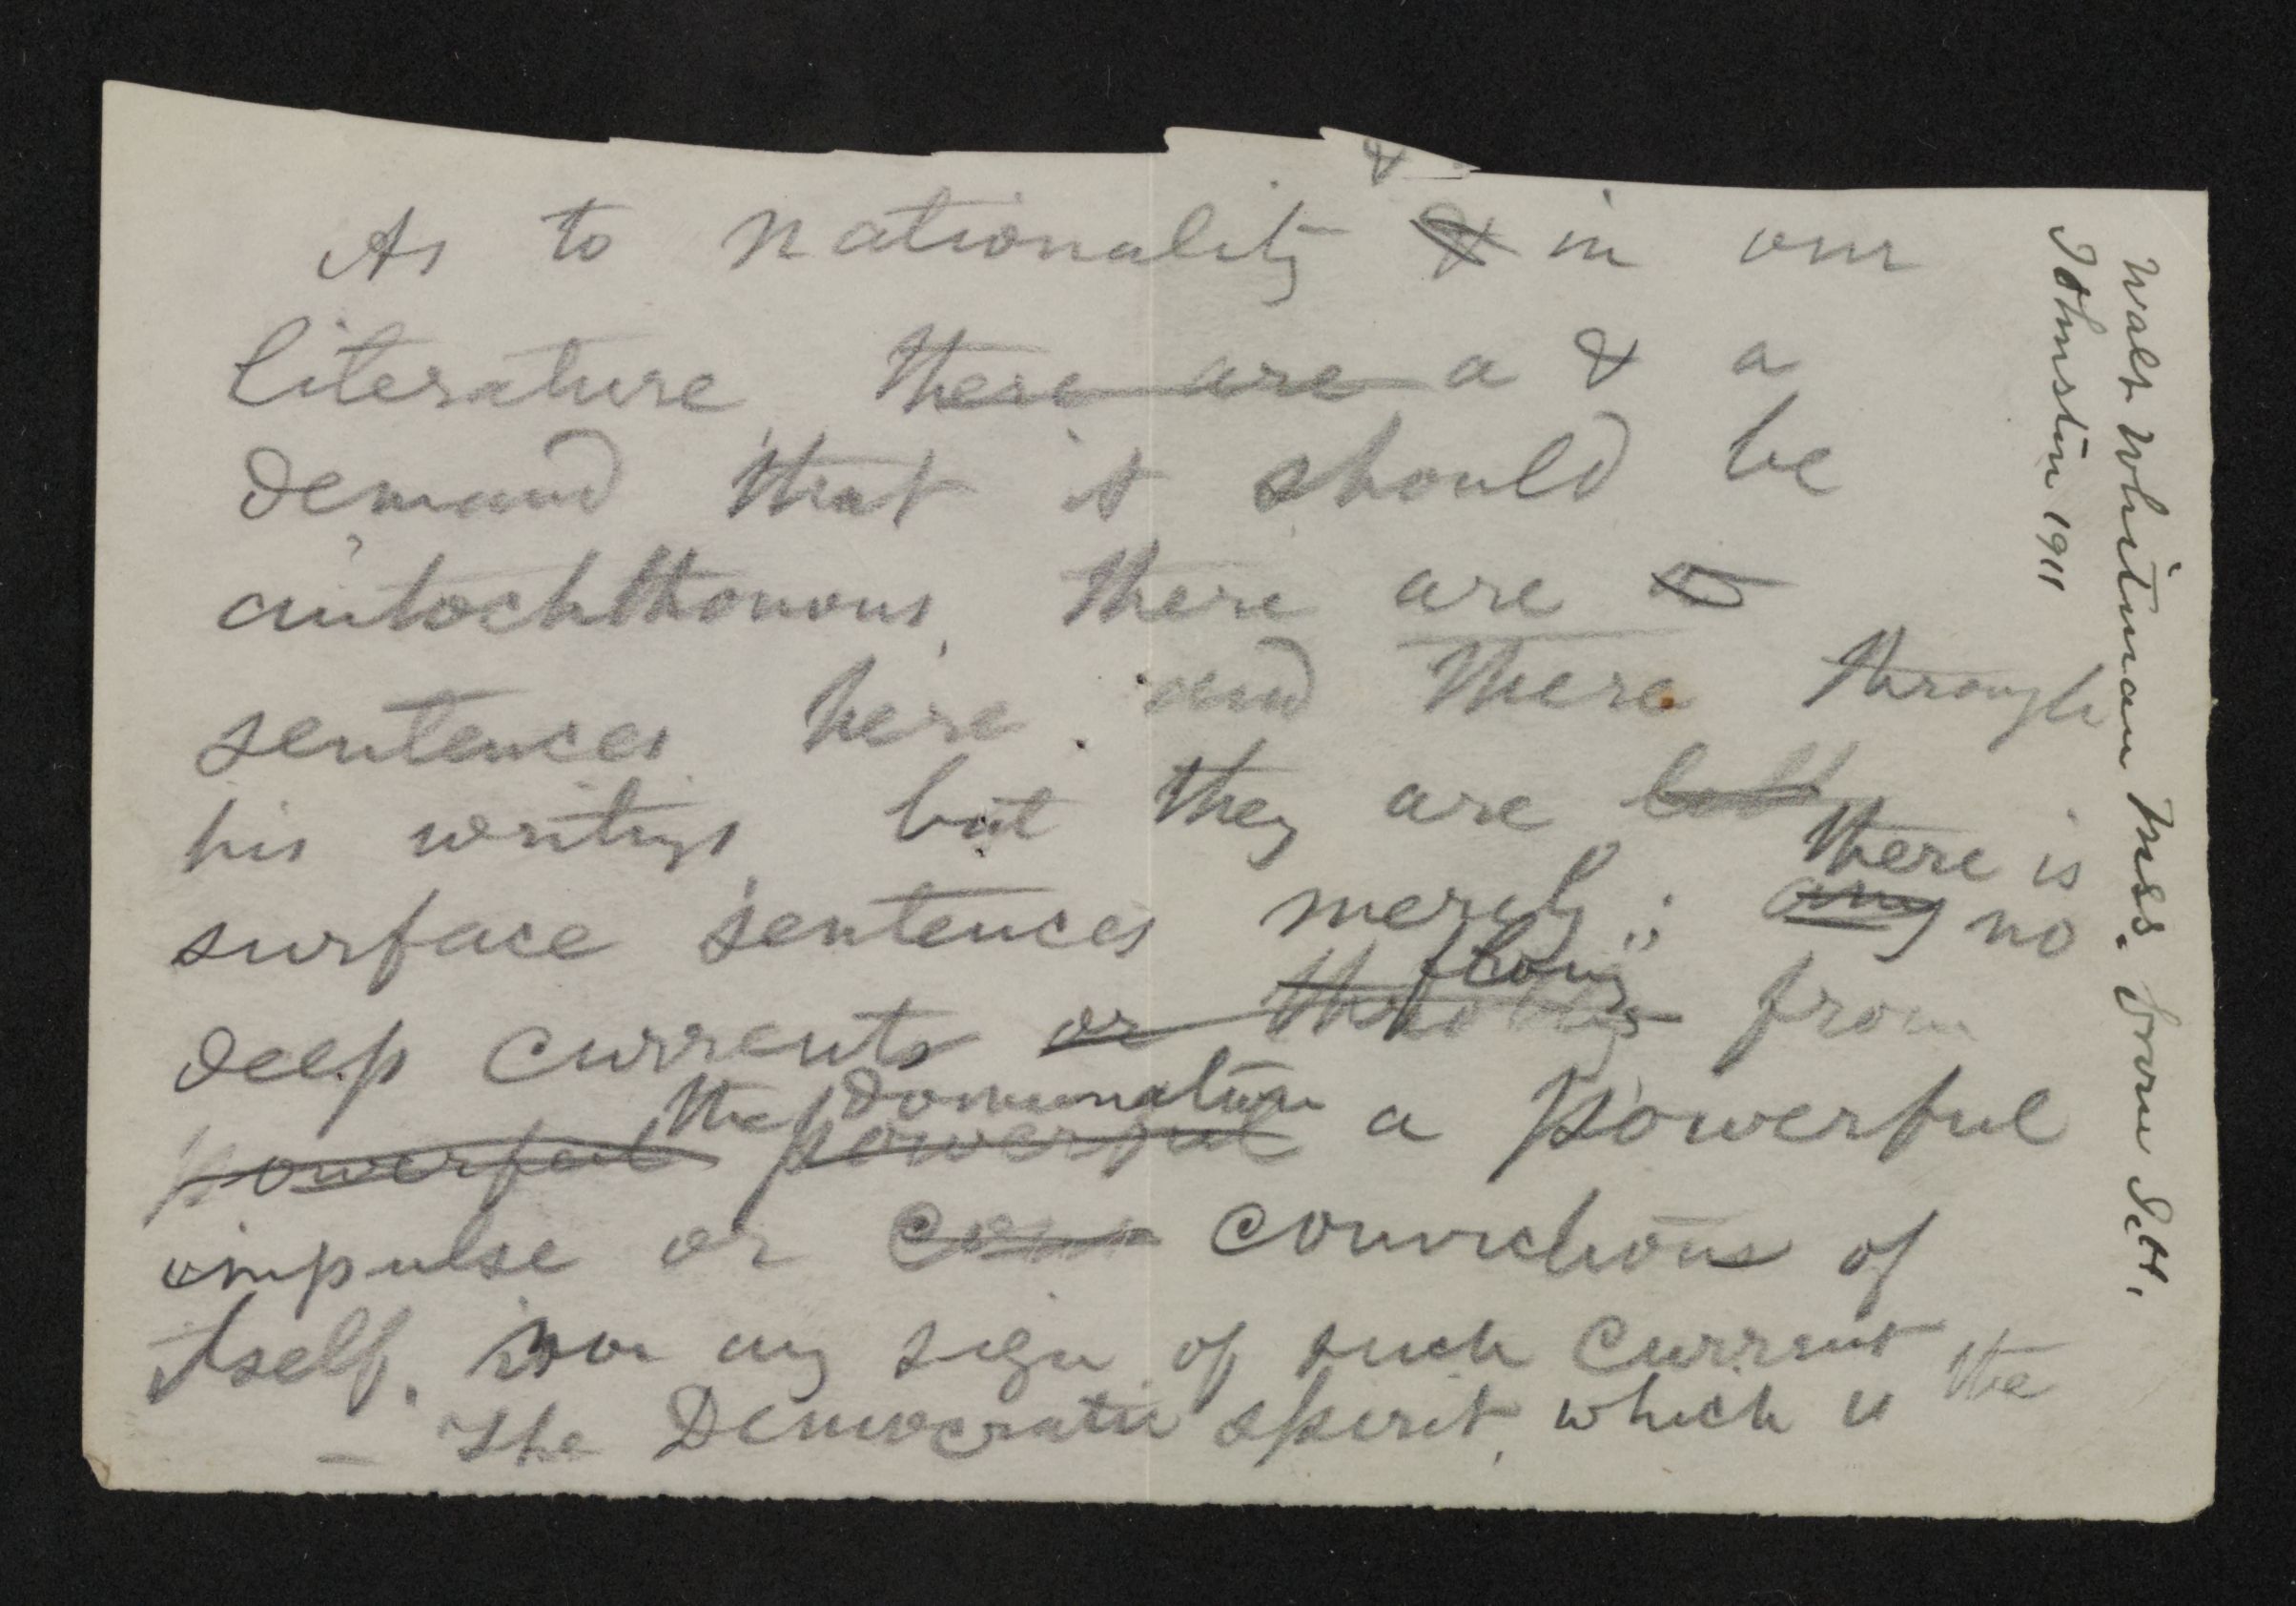 &
As to nationality & in our
literature, there are a & a
demand that it should be
autochthonous, there are a
sentences here and there through
his writings, but they are
there is
surface sentences merely; any no
flowing
deep currents or throbbings from
the domination
powerful powerful a powerful
impulse or convictions of
itself, nor any sign of such current the
— The Democratic spirit, which is
Walt Whitman Mss. from Sett.
Johnston 1911